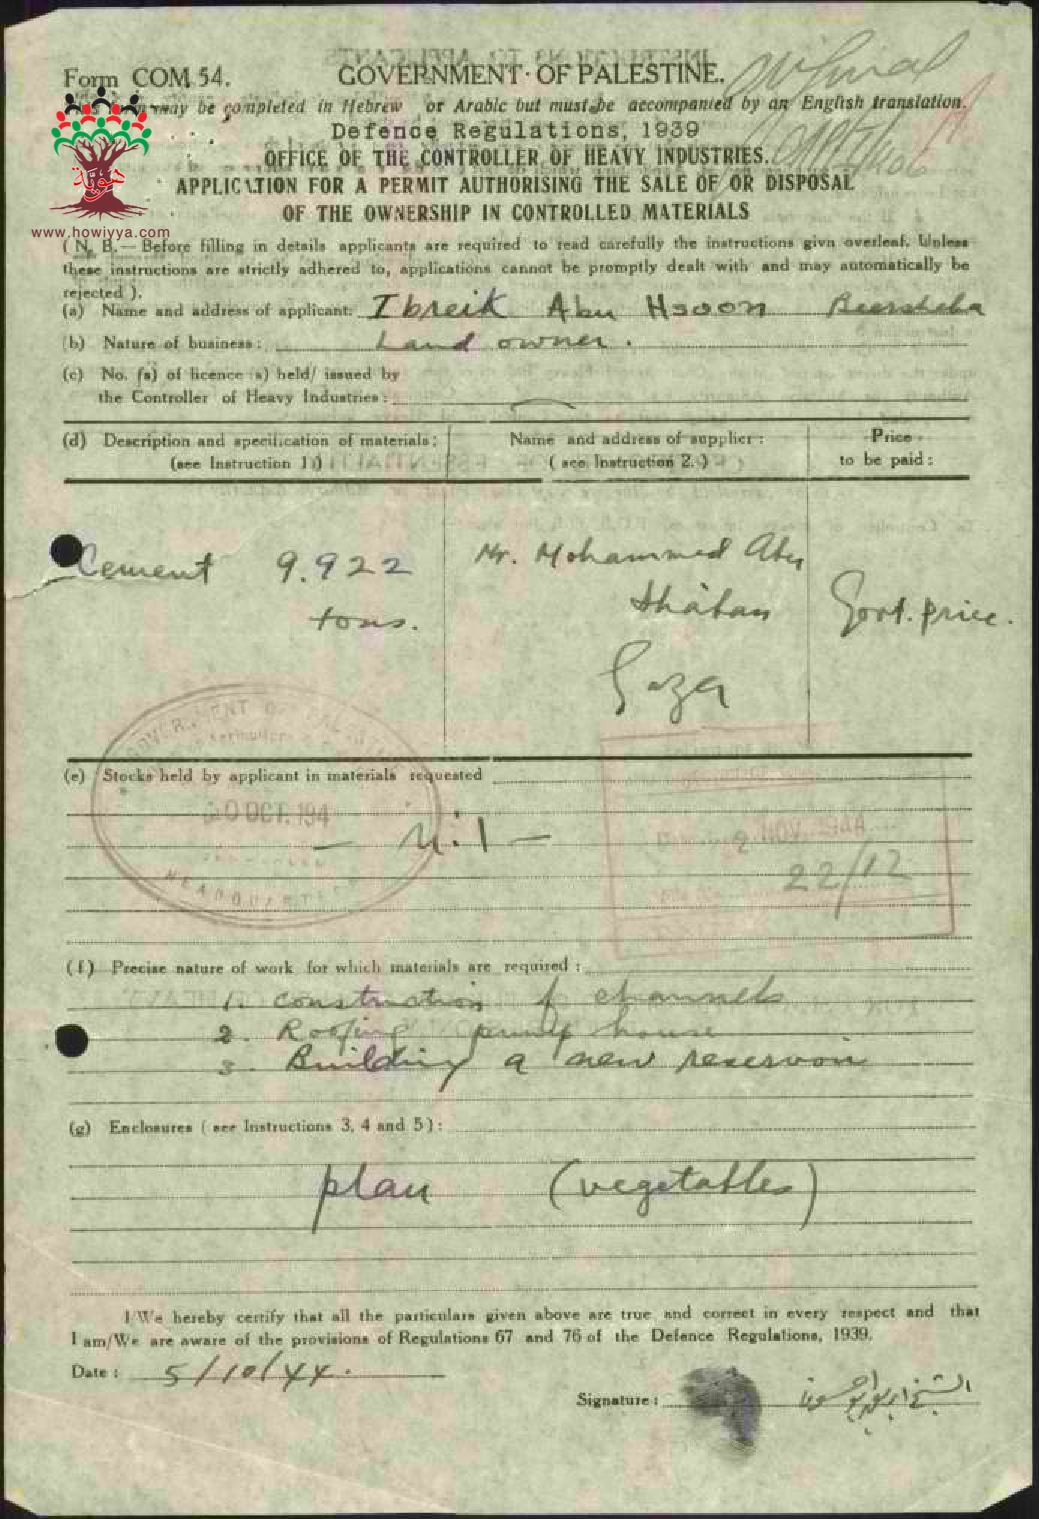 Original
Form COM 54.
GOVERNMENT OF PALESTINE.
may be completed in Hebrew or Arabic but must be accompanied by an English translation.
Defence Regulations, 1939
OFFICE OF THE CONTROLLER OF HEAVY INDUSTRIES.
APPLICATION FOR A PERMIT AUTHORISING THE SALE OF OR DISPOSAL
OF THE OWNERSHIP IN CONTROLLED MATERIALS
هوية
www.howiyya.com
(N. B.— Before filling in details applicants are required to read carefully the instructions givn overleaf. Unless
these instructions are strictly adhered to, applications cannot be promptly dealt with and may automatically be
rejected ).
(a) Name and address of applicant: Ibreik Abu Hsoon Beersheba
(b) Nature of business: Land owner.
(c) No. (s) of licence (s) held/ issued by
the Controller of Heavy Industries:
(d) Description and specification of materials: Name and address of supplier: Price
(see Instruction 1) (see Instruction 2.) to be paid:
Cement 9.922 Mr. Mohammed Abu
tons. Shaban Govt. price.
Gaza
GOVERNMENT OF PALESTINE
(e) Stocks held by applicant in materials requested
OCT. 194
— Nil —
2 NOV. 1944
22/12
HEADQUARTERS
(f) Precise nature of work for which materials are required:
1. construction of channels
2. Roofing pump house
3. Building a new reservoir
(g) Enclosures ( see Instructions 3, 4 and 5 ):
plan (vegetables)
I/We hereby certify that all the particulars given above are true and correct in every respect and that
I am/We are aware of the provisions of Regulations 67 and 76 of the Defence Regulations, 1939.
Date: 5/10/44.
Signature: الشيخ ابريق ابو حسون